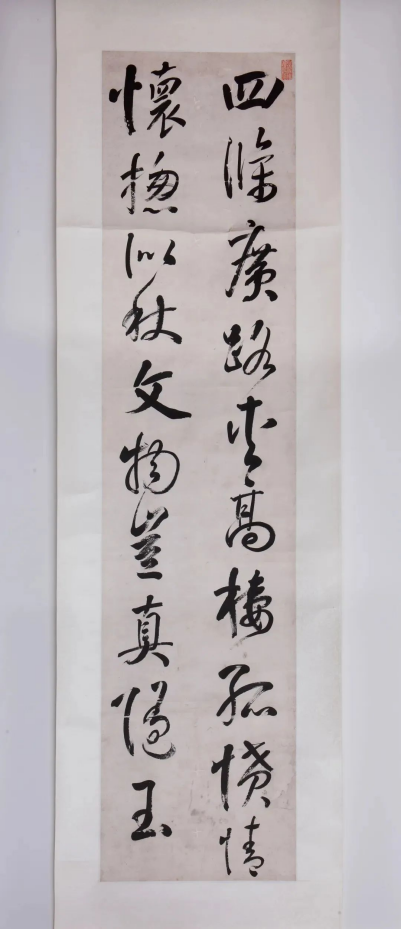 四條廣路夾高樓孤憤情
懷摠似秋文物豈真隨玉